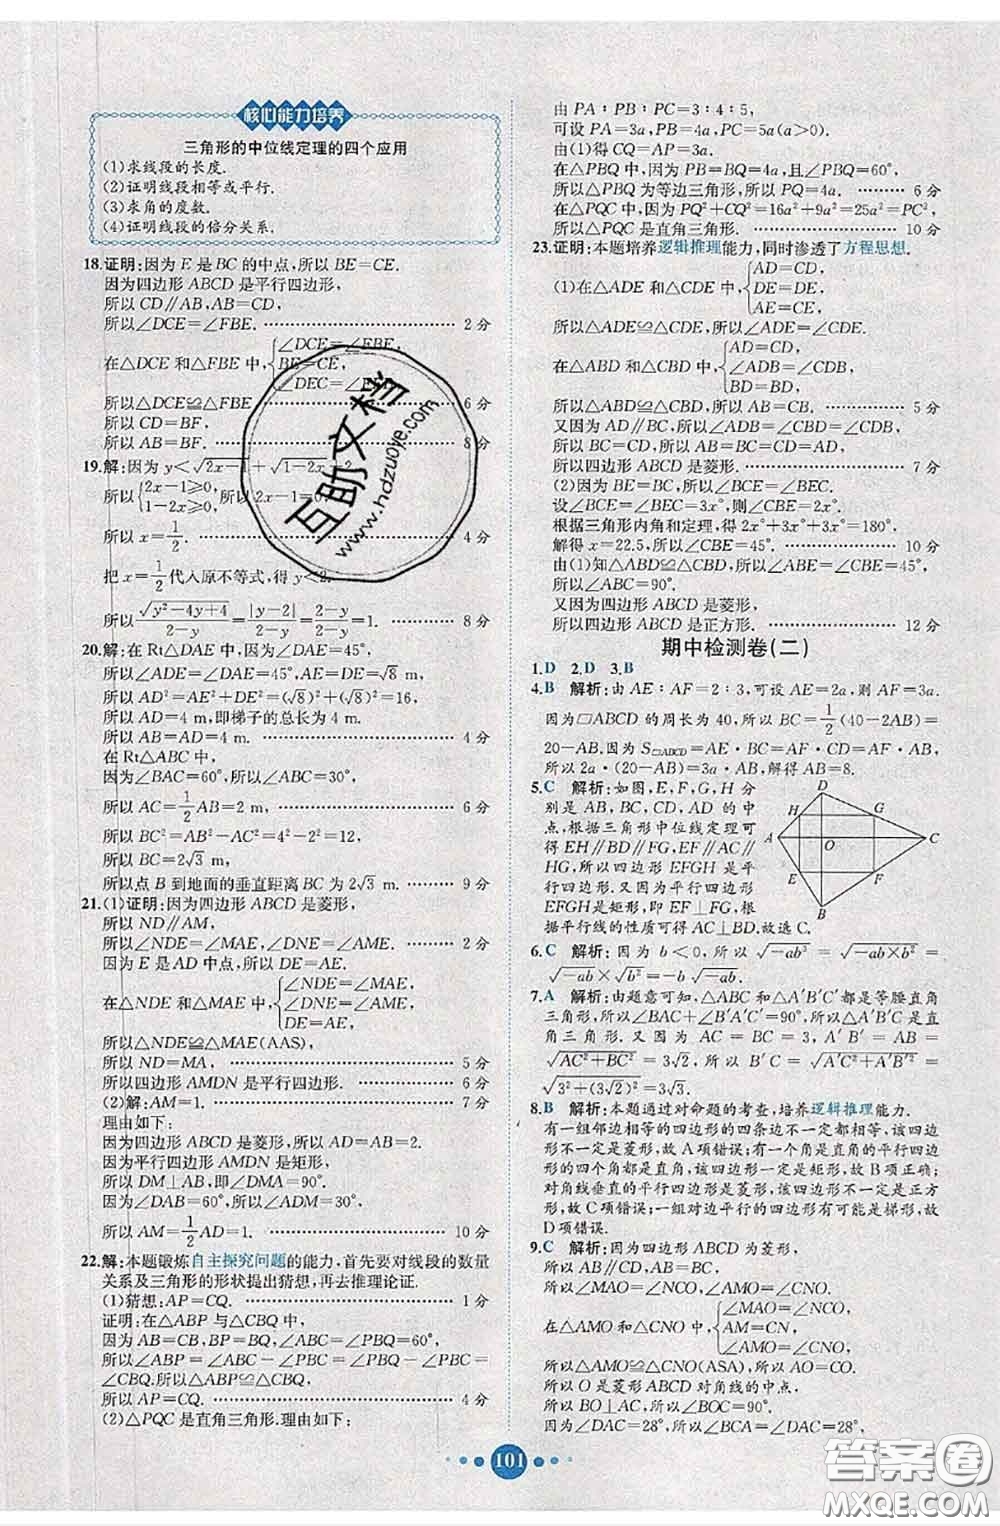 核心能力培养
三角形的中位线定理的四个应用
(1)求线段的长度.
(2)证明线段相等或平行.
(3)求角的度数.
(4)证明线段的倍分关系.
18.证明:因为 E 是 BC 的中点,所以 BE=CE.
因为四边形 ABCD 是平行四边形,
所以 CD∥AB,AB=CD,
所以∠DCE=∠FBE. 2 分
∠DCE=∠FBE,
在△DCE 和△FBE 中,{BE=CE,
∠DEC=∠
所以△DCE≌△FBE 6 分
所以 CD=BF.
所以 AB=BF. 8 分
19.解:因为 y<√2x-1+√1-2x+2
所以{2x-1≥0, 1-2x≥0, 所以 2x-1=0
所以 x=1/2. 4 分
把 x=1/2 代入原不等式,得 y<2.
所以 √y²-4y+4/2-y=|y-2|/2-y=2-y/2-y=1. 8 分
20.解:在 Rt△DAE 中,∠DAE=45°,
所以∠ADE=∠DAE=45°,AE=DE=√8 m,
所以 AD²=AE²+DE²=(√8)²+(√8)²=16,
所以 AD=4 m,即梯子的总长为 4 m.
所以 AB=AD=4 m. 4 分
在 Rt△ABC 中,
因为∠BAC=60°,所以∠ABC=30°,
所以 AC=1/2AB=2 m, 6 分
所以 BC²=AB²-AC²=4²-2²=12,
所以 BC=2√3 m,
所以点 B 到地面的垂直距离 BC 为 2√3 m. 9 分
21.(1)证明:因为四边形 ABCD 是菱形,
所以 ND∥AM,
所以∠NDE=∠MAE,∠DNE=∠AME. 2 分
因为 E 是 AD 中点,所以 DE=AE.
∠NDE=∠MAE,
在△NDE 和△MAE 中,{∠DNE=∠AME,
DE=AE,
所以△NDE≌△MAE(AAS),
所以 ND=MA, 5 分
所以四边形 AMDN 是平行四边形. 6 分
(2)解:AM=1. 7 分
理由如下:
因为四边形 ABCD 是菱形,所以 AD=AB=2.
因为平行四边形 AMDN 是矩形,
所以 DM⊥AB,即∠DMA=90°.
因为∠DAB=60°,所以∠ADM=30°,
所以 AM=1/2AD=1. 10 分
22.解:本题锻炼自主探究问题的能力,首先要对线段的数量
关系及三角形的形状提出猜想,再去推理论证.
(1)猜想:AP=CQ. 1 分
证明:在△ABP 与△CBQ 中,
因为 AB=CB,BP=BQ,∠ABC=∠PBQ=60°,
所以∠ABP=∠ABC-∠PBC=∠PBQ-∠PBC=
∠CBQ.所以△ABP≌△CBQ.
所以 AP=CQ. 4 分
(2)△PQC 是直角三角形.理由如下:
由 PA∶PB∶PC=3∶4∶5,
可设 PA=3a,PB=4a,PC=5a(a>0),
由(1)得 CQ=AP=3a.
在△PBQ 中,因为 PB=BQ=4a,且∠PBQ=60°,
所以△PBQ 为等边三角形,所以 PQ=4a. 6 分
在△PQC 中,因为 PQ²+CQ²=16a²+9a²=25a²=PC²,
所以△PQC 是直角三角形. 10 分
23.证明:本题培养逻辑推理能力,同时渗透了方程思想.
AD=CD,
(1)在△ADE 和△CDE 中,{DE=DE,
AE=CE,
所以△ADE≌△CDE,所以∠ADE=∠CDE.
AD=CD,
在△ABD 和△CBD 中,{∠ADB=∠CDB,
BD=BD,
所以△ABD≌△CBD,所以 AB=CB. 5 分
又因为 AD∥BC,所以∠ADB=∠CBD=∠CDB,
所以 BC=CD,所以 AB=BC=CD=AD,
所以四边形 ABCD 是菱形. 7 分
(2)因为 BE=BC,所以∠BCE=∠BEC.
设∠CBE=2x°,∠BEC=3x°,则∠BCE=3x°.
根据三角形内角和定理,得 2x°+3x°+3x°=180°,
解得 x=22.5,所以∠CBE=45°. 10 分
由(1)知△ABD≌△CBD,所以∠ABE=∠CBE=45°,
所以∠ABC=90°.
又因为四边形 ABCD 是菱形,
所以四边形 ABCD 是正方形. 12 分
期中检测卷(二)
1.D 2.D 3.B
4.B 解析:由 AE∶AF=2∶3,可设 AE=2a,则 AF=3a.
因为□ABCD 的周长为 40,所以 BC=1/2(40-2AB)=
20-AB.因为 S□ABCD=AE·BC=AF·CD,
所以 2a·(20-AB)=3a·AB,解得 AB=8.
5.C 解析:如图,E,F,G,H 分
别是 AB,BC,CD,AD 的中
点,根据三角形中位线定理可
得 EH∥BD∥FG,EF∥AC∥
HG,所以四边形 EFGH 是平
行四边形.又因为平行四边形
EFGH是矩形,即 EF⊥FG,根
据平行线的性质可得 AC⊥BD.故选C.
D
H
G
A
O
C
E
F
B
6.C 解析:因为 b<0,所以 √-ab³ = √-ab×b² =
√-ab×√b²=-b√-ab.
7.A 解析:由题意可知,△ABC 和△A′B′C′都是等腰直角
三角形,所以∠BAC+∠B′A′C′=90°,所以△A′B′C是直
角三角形.又因为 AC = BC = 3,A′B′ = AB =
√AC²+BC²=3√2,所以 B′C=√A′C²+A′B′²=
√3²+(3√2)²=3√3.
8.B 解析:本题通过对命题的考查,培养逻辑推理能力.
有一组邻边相等的四边形的四条边不一定都相等,该四边
形不一定是菱形,故 A 项错误;有一个角是直角的平行四边
形的四个角都是直角,该四边形一定是矩形,故 B 项正确;
对角线垂直的平行四边形是菱形,该四边形不一定是正方
形,故 C 项错误;一组对边平行的四边形有可能是梯形,故
D 项错误.
9.C 解析:因为四边形 ABCD 为菱形,
所以 AB∥CD,AB=BC,
所以∠MAO=∠NCO,∠AMO=∠CNO.
∠MAO=∠NCO,
在△AMO 和△CNO 中,{AM=CN,
∠AMO=∠CNO,
所以△AMO≌△CNO(ASA),所以 AO=CO.
所以 O 是菱形 ABCD 对角线的中点,
所以 BO⊥AC,所以∠BOC=90°.
因为∠DAC=28°,所以∠BCA=∠DAC=28°,
101
互助文档
www.hdzuoye.com
答案圈
MXQE.COM